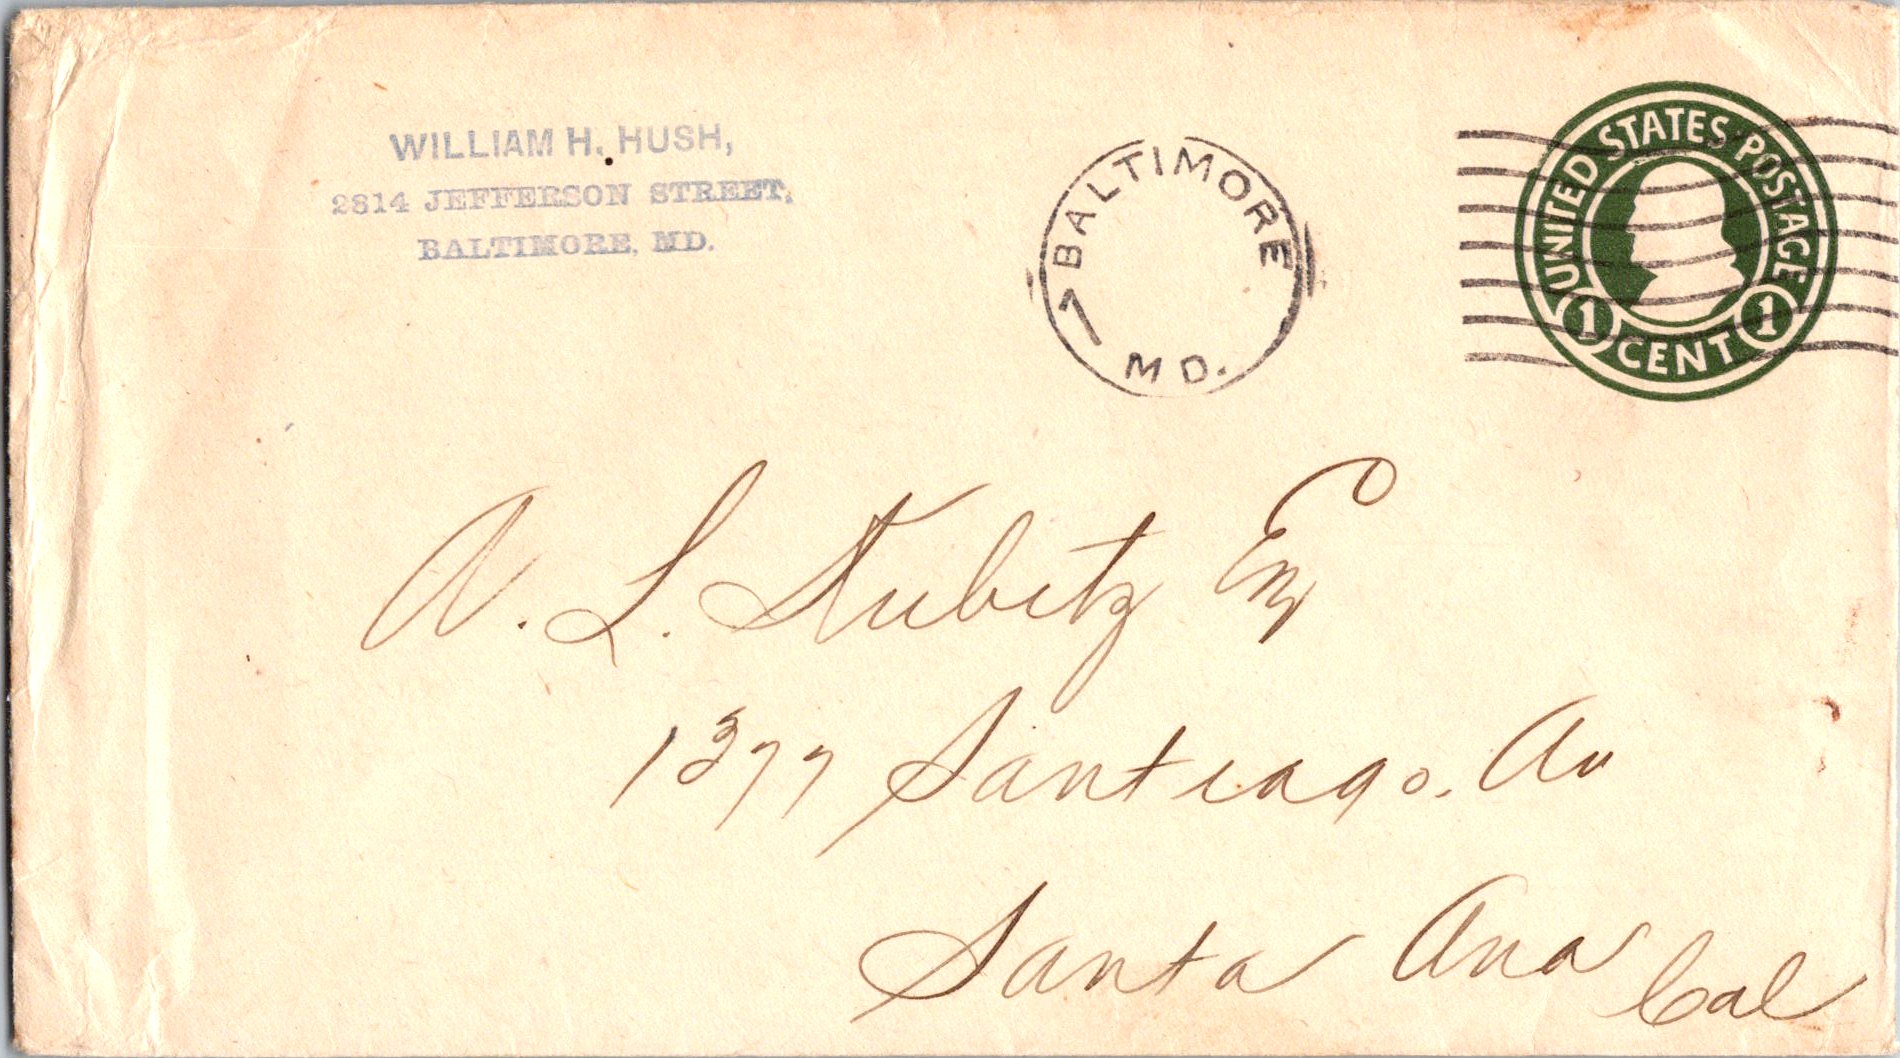 WILLIAM H. HUSH,
2814 JEFFERSON STREET,
BALTIMORE, MD.
BALTIMORE
7
MD.
UNITED STATES POSTAGE
1 CENT 1
A. L. Stubitz Esq
1377 Santiago. Av
Santa Ana Cal